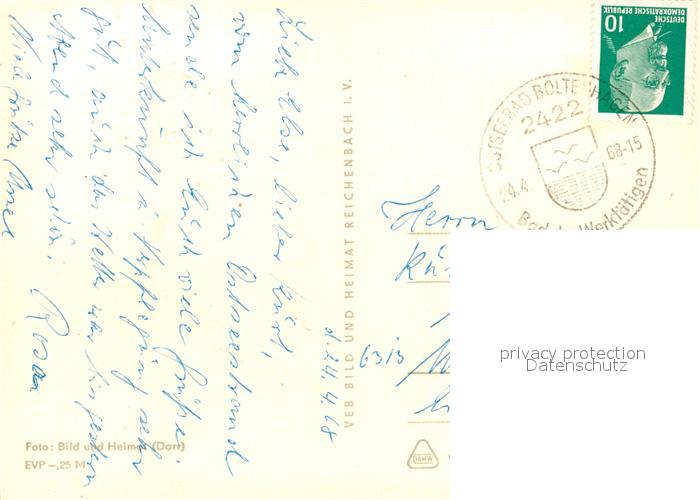 Liebe Else, lieber Kurt,
vom herrlichen Ostseestrand
sende ich Euch viele Grüße.
Unterkunft u. Verpflegung sehr
gut, auch das Wetter war bis gestern
Abend sehr schön.
Rosa
d. 24.4.68
VEB BILD UND HEIMAT REICHENBACH I. V.
Foto: Bild und Heimat (Darr)
EVP -,25 M
10
DEUTSCHE
DEMOKRATISCHE REPUBLIK
OSTSEEBAD BOLTENHAGEN
2422
24.4. 68-15
Bad der Werktätigen
Herrn
6313
privacy protection
Datenschutz